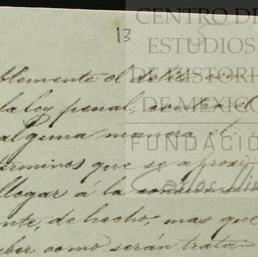 CENTRO DE
ESTUDIOS
DE HISTORIA
DE MEXICO
FUNDACIÓN
13
blemente el
la ley penal,
alguna manera el
terminos que se aproxi
llegar á la
nte, de hecho, mas que
como serán trata-